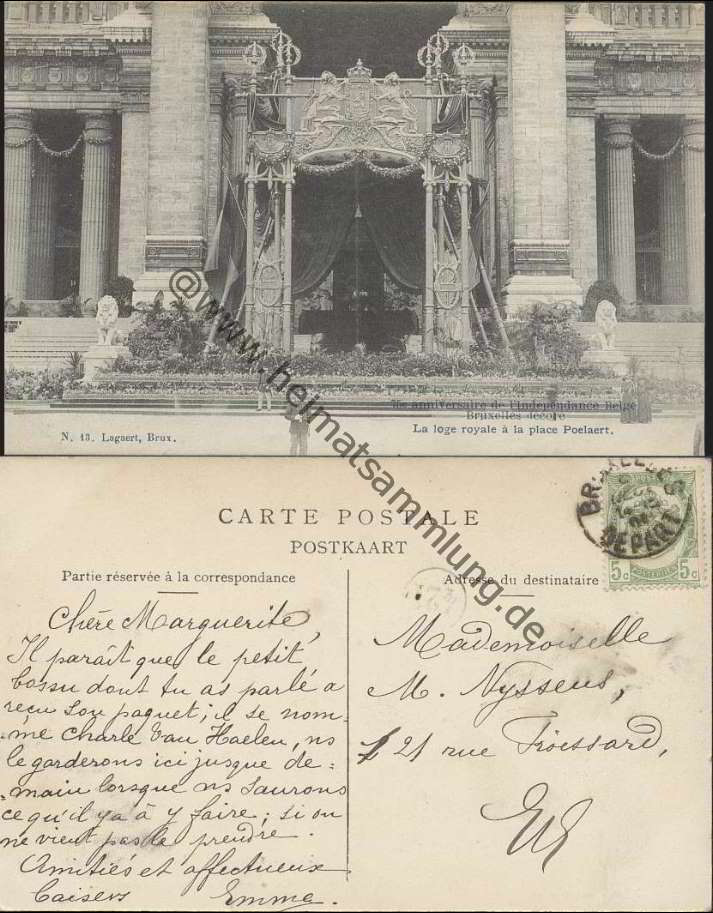 75e anniversaire de l'Indépendance Belge
Bruxelles décoré
La loge royale à la place Poelaert.
N. 13. Lagaert, Brux.
@www.heimatsammlung.de
CARTE POSTALE
POSTKAART
Partie réservée à la correspondance
Adresse du destinataire
BRUXELLES
DEPART
5c 5c
Chère Marguerite,
Il paraît que le petit
bossu dont tu as parlé a
reçu son paquet; il se nom-
mé Charle Van Haelen, ns
le garderons ici jusque de-
main lorsque ns saurons
ce qu'il y a à y faire; si on
ne vient pas le prendre.
Amitiés et affectueux
baisers Emma.
Mademoiselle
M. Nyssens,
21 rue Froissard,